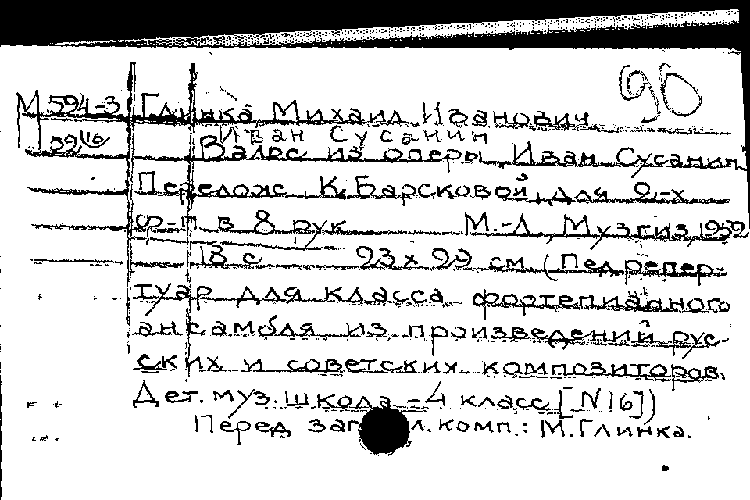 90
М 594-3 Глинка Михаил Иванович
Иван Сусанин
Вальс из оперы Иван Сусанин
Перелож К. Барсковой, для 2-х
ф-п в 8 рук М.-Л, Музгиз 1952
18 с 23 х 29 см (Пед. репер-
туар для класса фортепианного
ансамбля из произведений рус-
ских и советских композиторов.
Дет. муз. школа - 4 класс [N 16])
Перед заг л. комп.: М. Глинка.